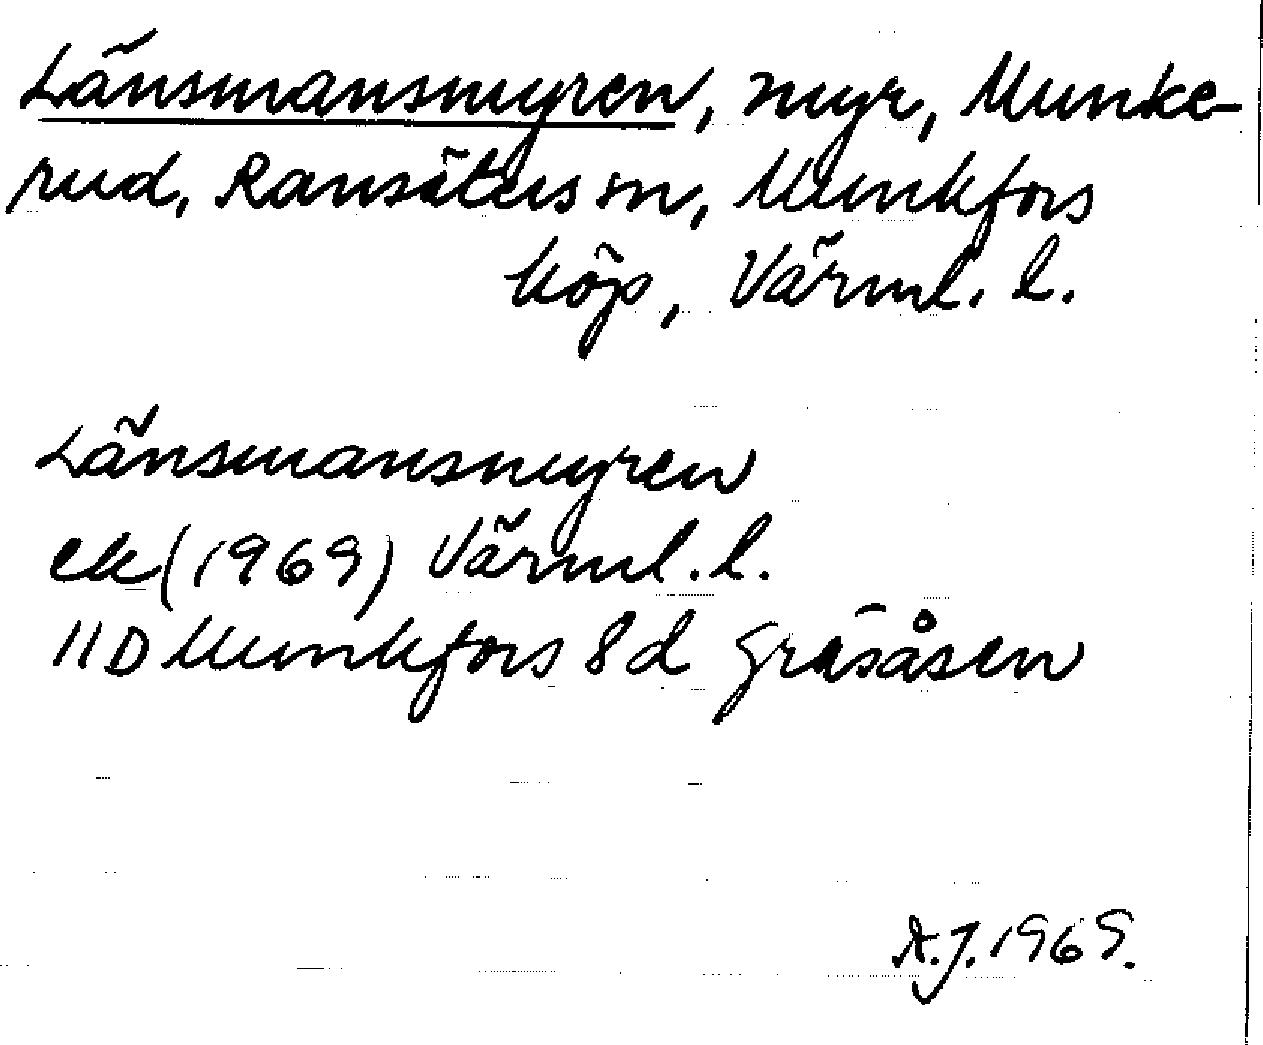 Länsmansmyren, myr, Munke-
rud, Ransäters sn, Munkfors
köp, Värml. l.
Länsmansmyren
ek (1969) Värml. l.
11D Munkfors 8d Gräsåsen
A.J. 1969.